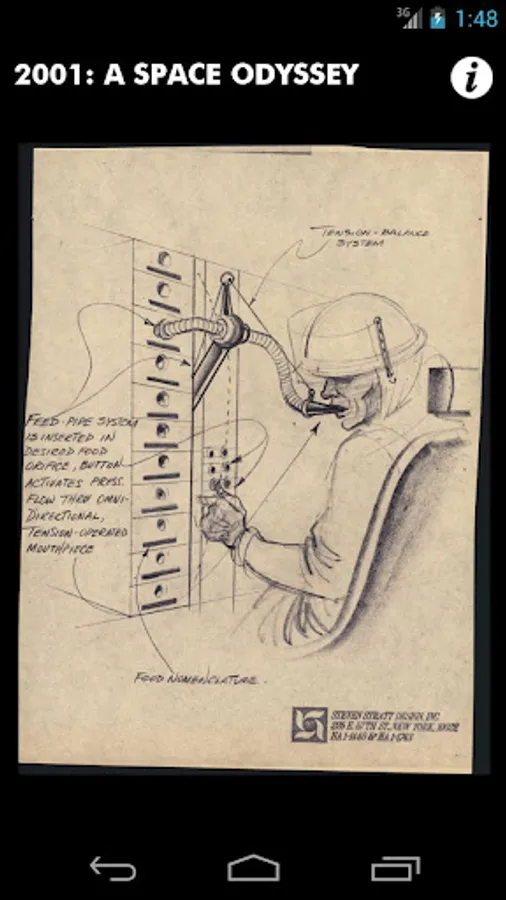 3G 1:48
2001: A SPACE ODYSSEY
i
TENSION-BALANCE
SYSTEM
FEED-PIPE SYSTEM
IS INSERTED IN
DESIRED FOOD
ORIFICE, BUTTON
ACTIVATES PRESS.
FLOW THRU OMNI-
DIRECTIONAL,
TENSION-OPERATED
MOUTHPIECE
FOOD NOMENCLATURE.
DESIGN, INC
ST., NEW YORK,